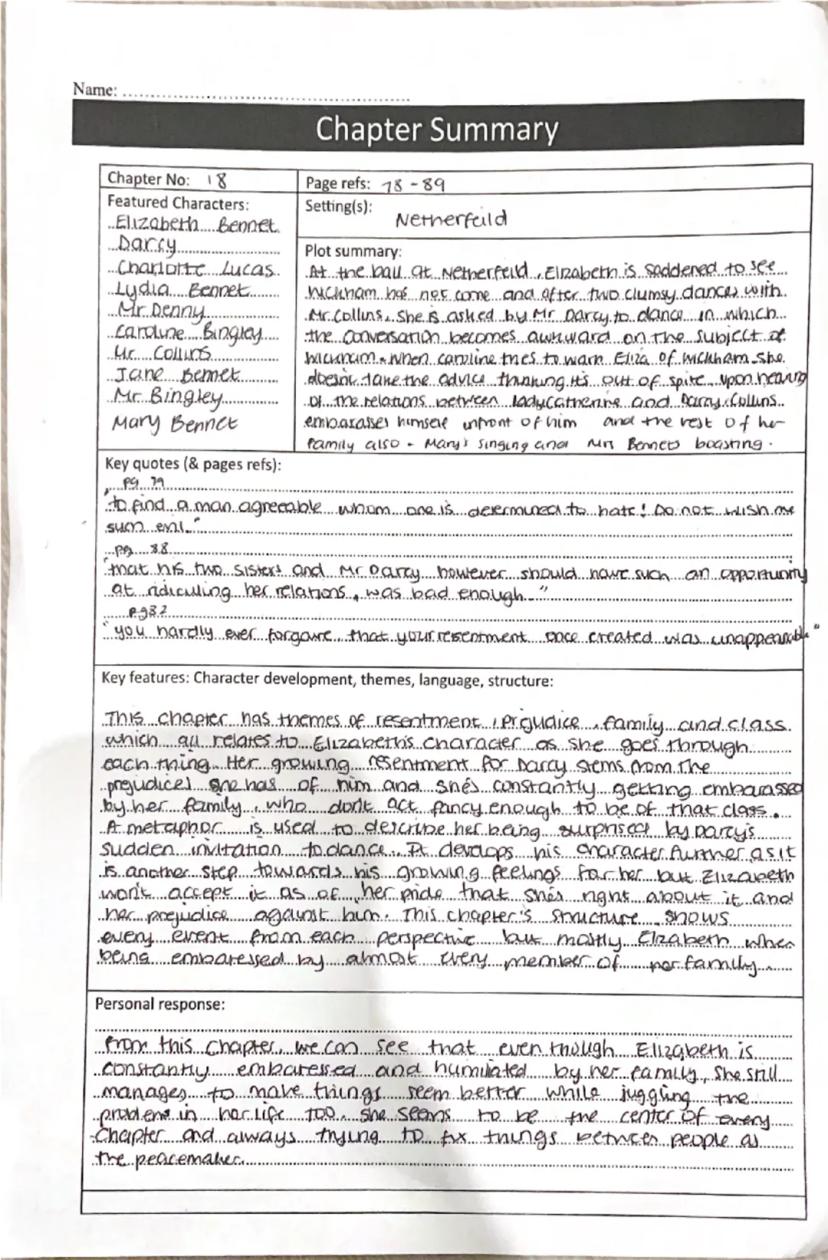 Name:
Chapter Summary
Chapter No: 18
Page refs: 78 - 89
Featured Characters:
Elizabeth Bennet
Darcy
Charlotte Lucas
Lydia Bennet
Mr Denny
Caroline Bingley
Mr Collins
Jane Bennet
Mr Bingley
Mary Bennet
Setting(s):
Netherfeild
Plot summary:
At the ball at Netherfeild, Elizabeth is saddened to see
Wickham has not come and after two clumsy dances with
Mr Collins, she is asked by Mr Darcy to dance in which
the conversation becomes awkward on the subject of
wickham. when caroline tries to warn Eliza of wickham she
doesn't take the advice thinking it's out of spite. upon hearing
of the relations between lady Catherine and Darcy, Collins
embarasses himself infront of him and the rest of her
family also - Mary's singing and Mrs Bennets boasting.
Key quotes (& pages refs):
pg 79
"to find a man agreeable whom one is determined to hate! Do not wish me
such evil."
pg 88
"that his two sisters and Mr Darcy however should have such an opportunity
at ridiculing her relations, was bad enough"
pg 82
"you hardly ever forgave, that your resentment once created was unappeasable"
Key features: Character development, themes, language, structure:
This chapter has themes of resentment, prejudice, family and class
which all relates to Elizabeth's character as she goes through
each thing. Her growing resentment for Darcy stems from the
prejudices she has of him and she's constantly getting embarassed
by her family, who don't act fancy enough to be of that class.
A metaphor is used to describe her being surprised by Darcy's
sudden invitation to dance. It develops his character further as it
is another step towards his growing feelings for her but Elizabeth
won't accept it as of her pride that she's right about it and
her prejudice against him. This chapter's structure shows
every event from each perspective but mostly Elizabeth when
being embaressed by almost every member of her family.
Personal response:
From this chapter, we can see that even though Elizabeth is
constantly embaressed and humiliated by her family, she still
manages to make things seem better while juggling the
problems in her life too. she seems to be the center of every
chapter and always trying to fix things between people as
the peacemaker.